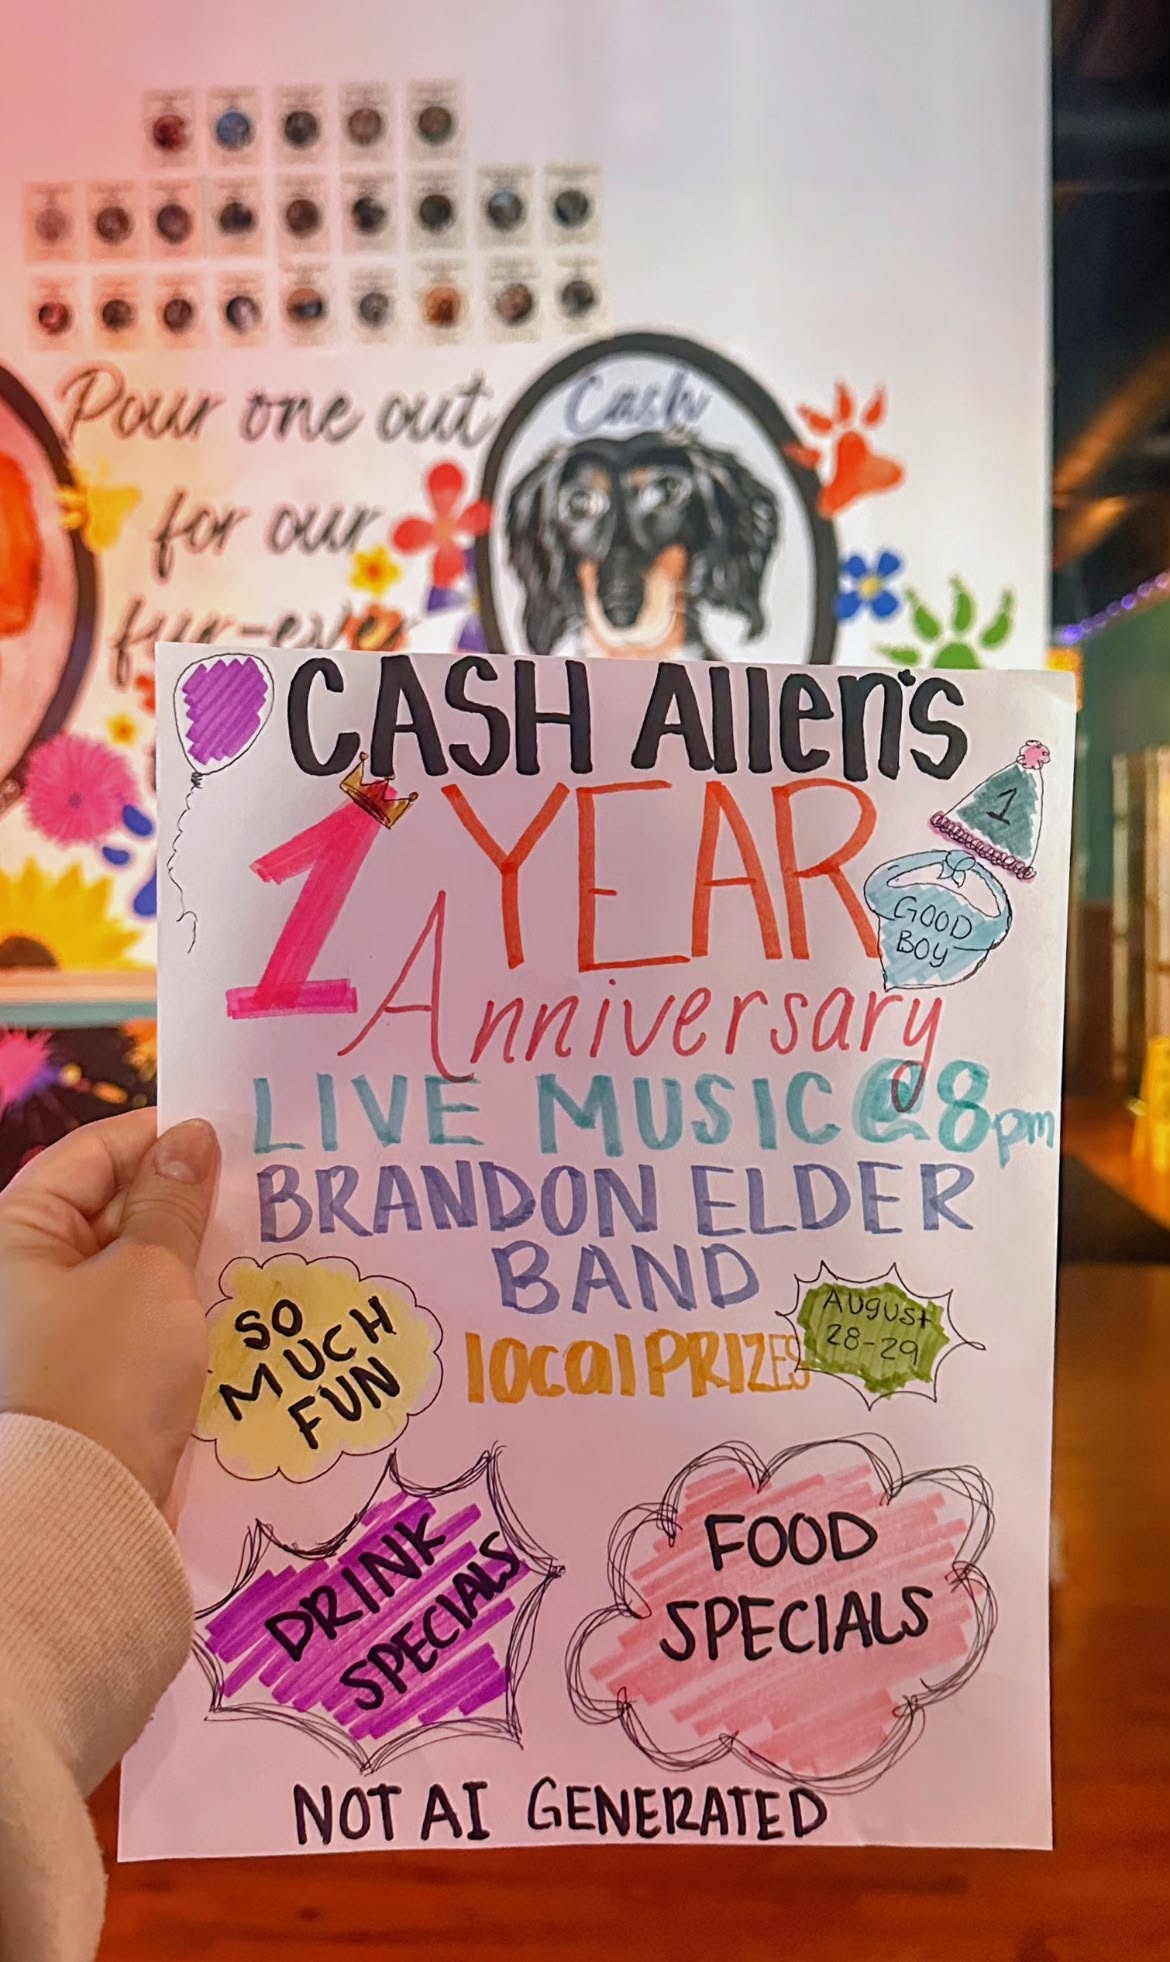 Pour one out
for our
fur-ever
Cash
CASH Allen's
1 YEAR
Anniversary
1
GOOD
BOY
LIVE MUSIC @ 8pm
BRANDON ELDER
BAND
SO
MUCH
FUN
local PRIZES
AUGUST
28-29
DRINK
SPECIALS
FOOD
SPECIALS
NOT AI GENERATED